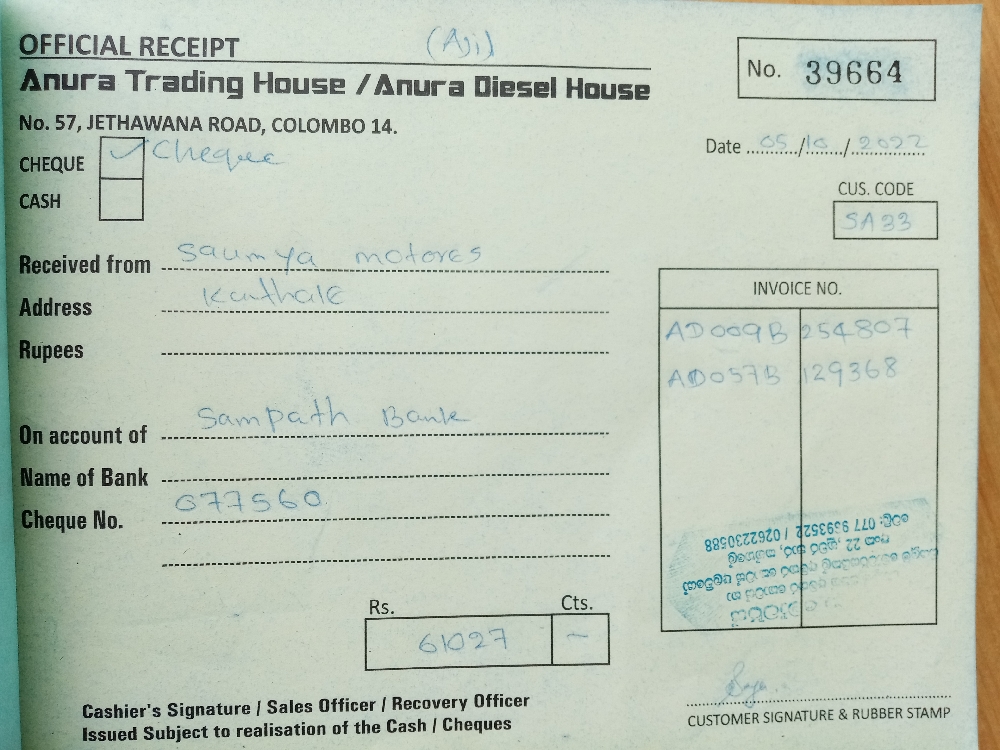 OFFICIAL RECEIPT (Aji)
Anura Trading House / Anura Diesel House
No. 39664
No. 57, JETHAWANA ROAD, COLOMBO 14.
CHEQUE Cheque
CASH
Date 05/10/2022
CUS. CODE
SA33
Received from Saumya motores
Address Kanthale
Rupees
On account of Sampath Bank
Name of Bank
Cheque No. 077560
INVOICE NO.
AD009B 254807
AD057B 129368
077 9393522 / 0262230588
Rs. Cts.
61027 –
Cashier's Signature / Sales Officer / Recovery Officer
Issued Subject to realisation of the Cash / Cheques
CUSTOMER SIGNATURE & RUBBER STAMP